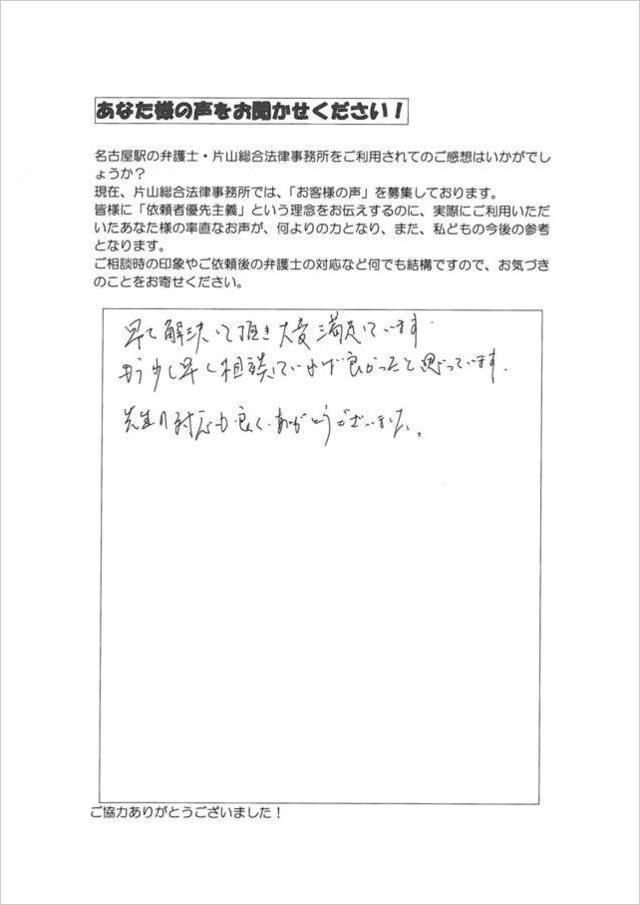 あなた様の声をお聞かせください！
名古屋駅の弁護士・片山総合法律事務所をご利用されてのご感想はいかがでし
ょうか？
現在、片山総合法律事務所では、「お客様の声」を募集しております。
皆様に「依頼者優先主義」という理念をお伝えするのに、実際にご利用いただ
いたあなた様の率直なお声が、何よりの力となり、また、私どもの今後の参考
となります。
ご相談時の印象やご依頼後の弁護士の対応など何でも結構ですので、お気づき
のことをお寄せください。
早く解決して頂き大変満足しています.
もう少し早く相談していれば良かったと思っています.
先生の対応も良く、ありがとうございました。
ご協力ありがとうございました！